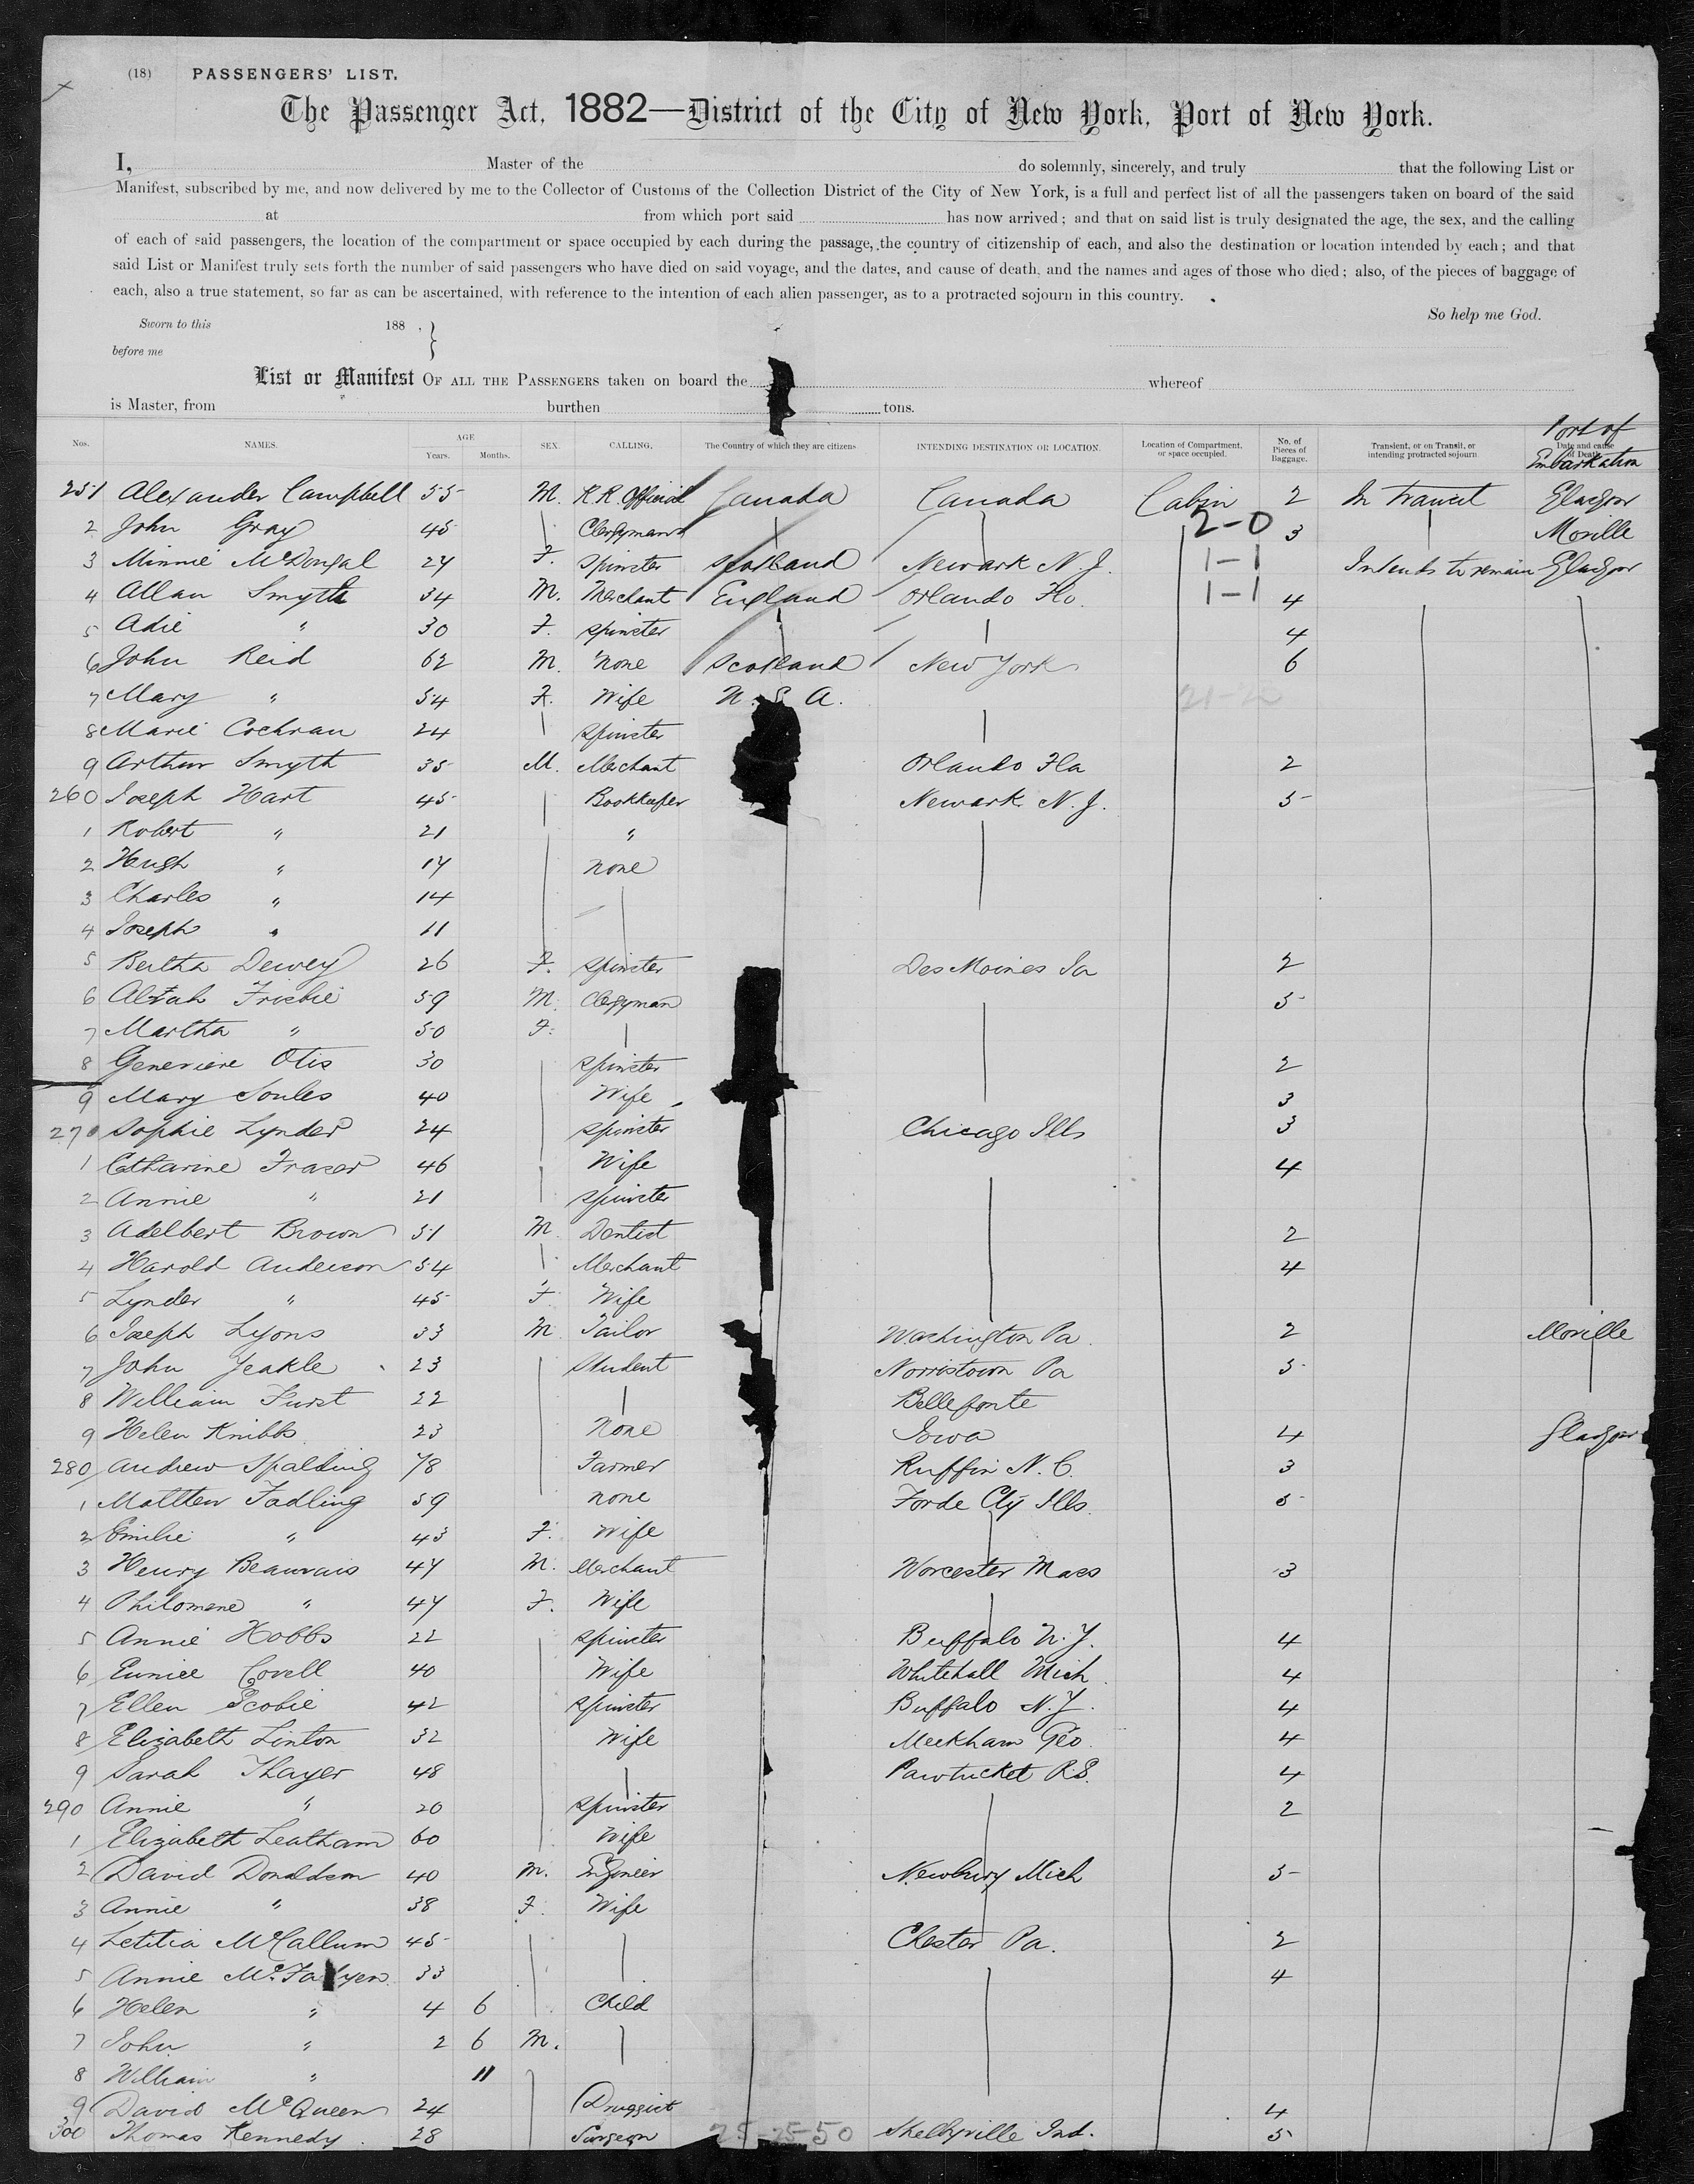 (18) PASSENGERS' LIST.
The Passenger Act, 1882—District of the City of New York, Port of New York.
I, Master of the do solemnly, sincerely, and truly that the following List or
Manifest, subscribed by me, and now delivered by me to the Collector of Customs of the Collection District of the City of New York, is a full and perfect list of all the passengers taken on board of the said
at from which port said has now arrived; and that on said list is truly designated the age, the sex, and the calling
of each of said passengers, the location of the compartment or space occupied by each during the passage, the country of citizenship of each, and also the destination or location intended by each; and that
said List or Manifest truly sets forth the number of said passengers who have died on said voyage, and the dates, and cause of death, and the names and ages of those who died; also, of the pieces of baggage of
each, also a true statement, so far as can be ascertained, with reference to the intention of each alien passenger, as to a protracted sojourn in this country.
So help me God.
Sworn to this 188 .
before me
List or Manifest OF ALL THE PASSENGERS taken on board the whereof
is Master, from burthen tons.
Port of
Nos. NAMES. AGE Years. Months. SEX. CALLING. The Country of which they are citizens INTENDING DESTINATION OR LOCATION. Location of Compartment, or space occupied. No. of Pieces of Baggage. Transient, or on Transit, or intending protracted sojourn Date and cause of Death
Embarkation
251 Alexander Campbell 55 M. R.R. Official Canada Canada Cabin 2 In transit Glasgow
2 John Gray 45 Clergyman 2-0 3 Moville
3 Minnie McDongal 24 F. Spinster Scotland Newark N.J. 1-1 Intends to remain Glasgow
4 Allan Smyth 34 M. Merchant England Orlando Flo. 1-1 4
5 Adie " 30 F. Spinster 4
6 John Reid 62 M. None Scotland New York 6
7 Mary " 54 F. Wife U. S. A.
8 Marie Cochran 24 Spinster
9 Arthur Smyth 35 M. Merchant Orlando Fla 2
260 Joseph Hart 45 Bookkeeper Newark N.J. 5
1 Robert " 21 "
2 Hugh " 17 None
3 Charles " 14
4 Joseph " 11
5 Bertha Dewey 26 F. Spinster Des Moines Ia 2
6 Alvah Frisbie 59 M. Clergyman 5
7 Martha " 50 F.
8 Genevieve Otis 30 Spinster 2
9 Mary Soules 40 Wife 3
270 Sophie Lynder 24 Spinster Chicago Ills 3
1 Catharine Fraser 46 Wife 4
2 Annie " 21 Spinster
3 Adelbert Brown 51 M Dentist 2
4 Harold Anderson 54 Merchant 4
5 Lynder " 45 F Wife
6 Joseph Lyons 33 M. Tailor Washington Pa. 2 Moville
7 John Yeakle 23 Student Norristown Pa 5
8 William Furst 22 Bellefonte
9 Helen Knibbs 23 None Iowa 4 Glasgow
280 Andrew Spalding 78 Farmer Ruffin N.C. 3
1 Matthew Fadling 59 None Forde Cty Ills. 5
2 Emilie " 43 F. Wife
3 Henry Beauvais 47 M. Merchant Worcester Mass 3
4 Philomene " 47 F. Wife
5 Annie Hobbs 22 Spinster Buffalo N.Y. 4
6 Eunice Covell 40 Wife Whitehall Mich 4
7 Ellen Scobie 42 Spinster Buffalo N.Y. 4
8 Elizabeth Linton 32 Wife Meekham Geo. 4
9 Sarah Thayer 48 Pawtucket R.I. 4
290 Annie " 20 Spinster 2
1 Elizabeth Leatham 60 Wife
2 David Donaldson 40 M. Engineer Newbury Mich 5
3 Annie " 38 F. Wife
4 Letitia McCallum 45 Chester Pa. 2
5 Annie 33 4
6 Helen " 4 6 Child
7 John " 2 6 M.
8 William " 11
9 David McQueen 24 Druggist 4
300 Thomas Kennedy 28 Surgeon 25-25-50 Shelbyville Ind. 5